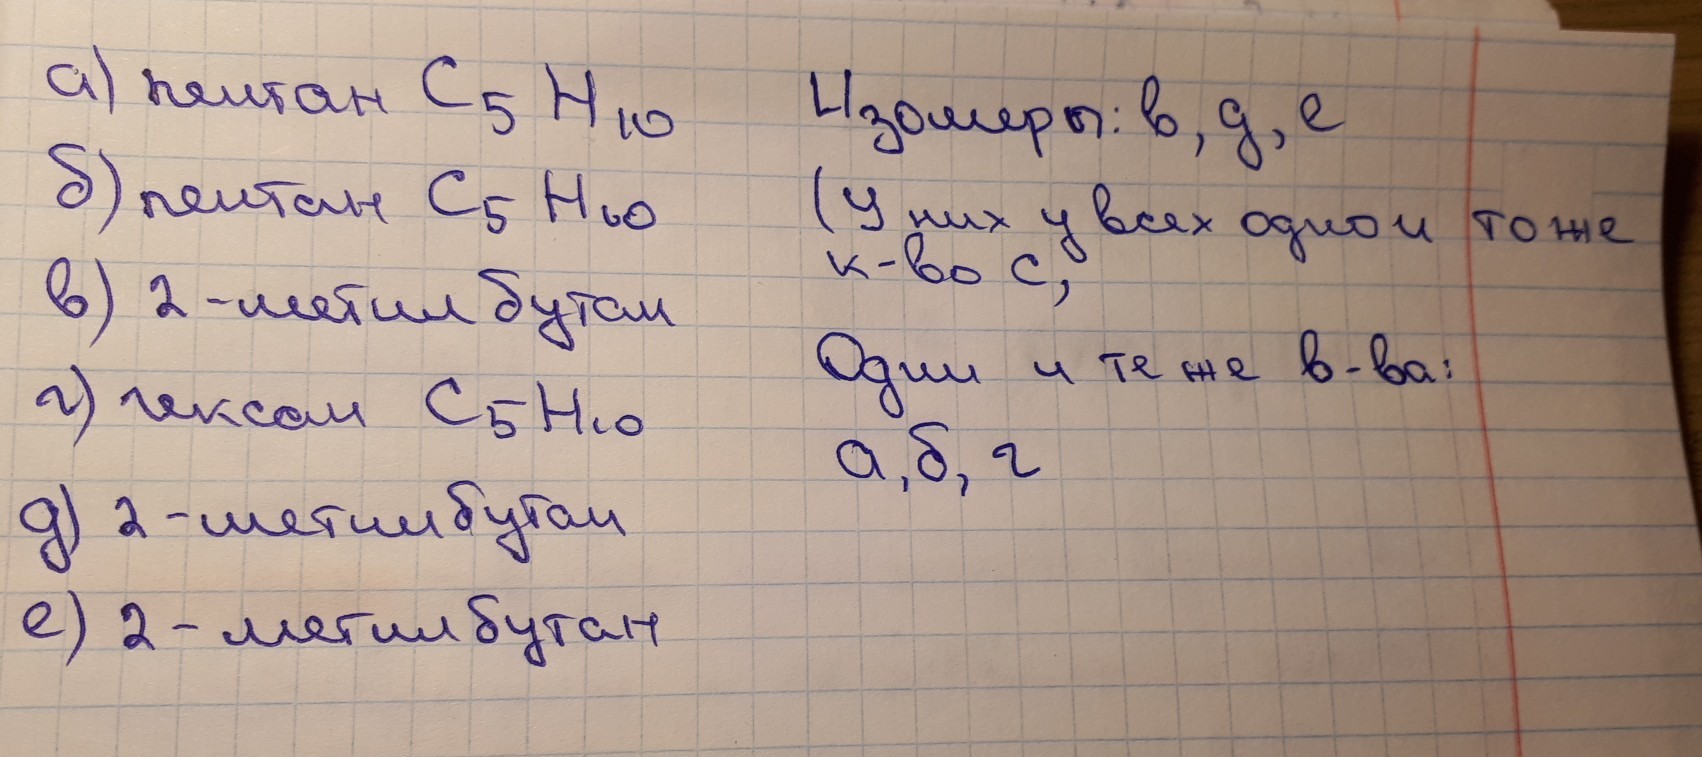 а) пентан C5H10
б) пентан C5H10
в) 2-метилбутан
г) гексан C5H10
д) 2-метилбутан
е) 2-метилбутан
Изомеры: в, д, е
(У них у всех одно и тоже
к-во С,
Одни и те же в-ва:
а, б, г